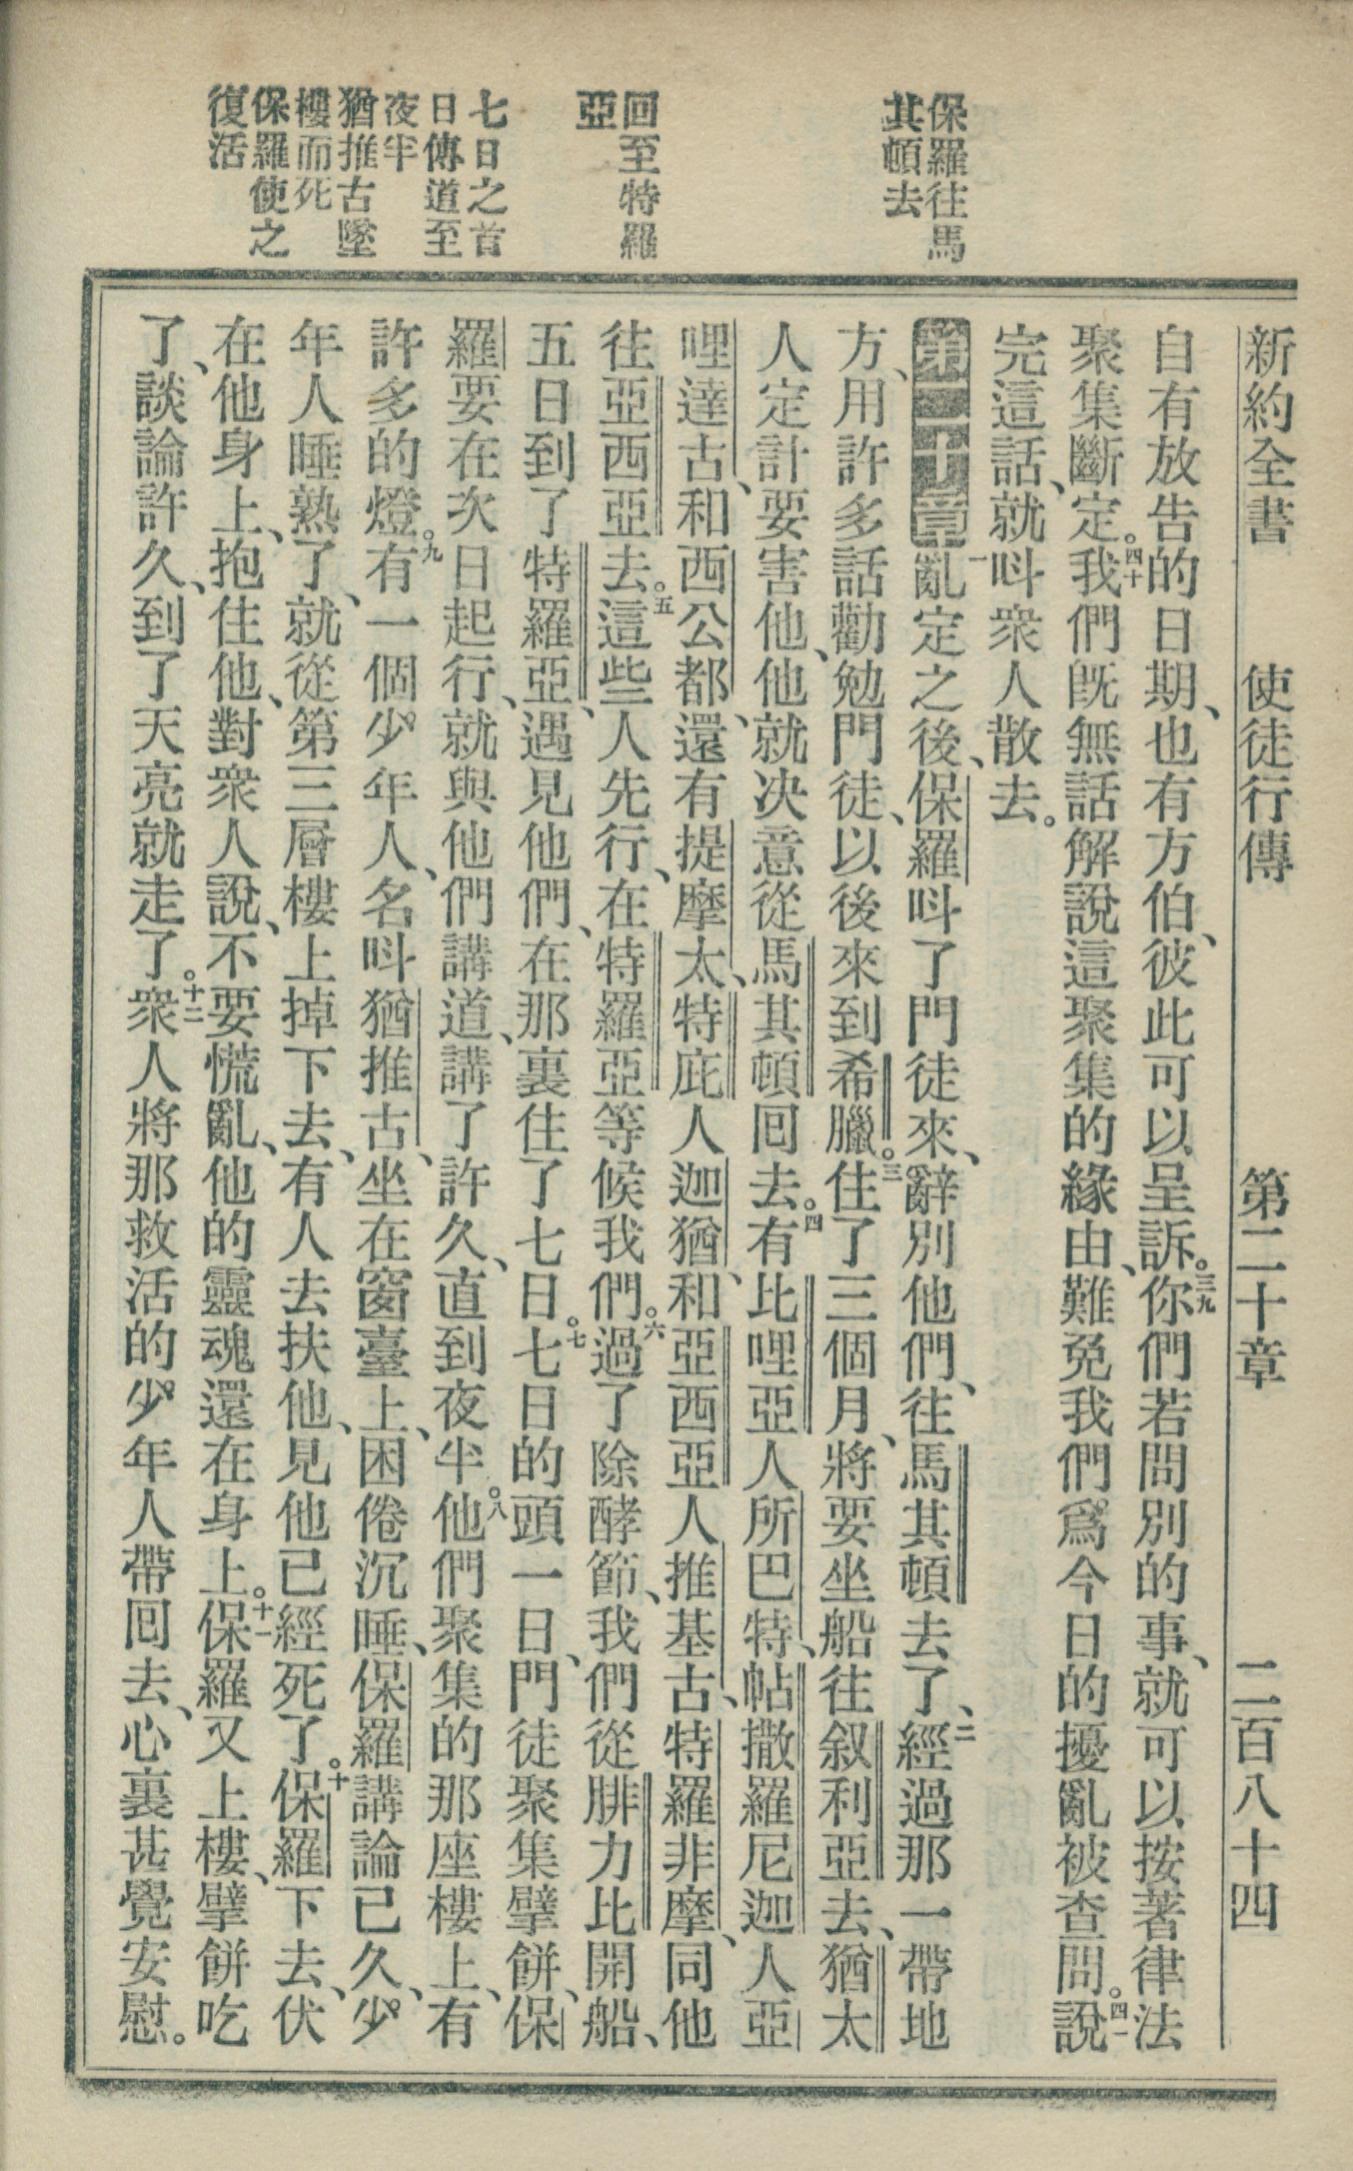 新約全書 使徒行傳 第二十章 二百八十四
保羅往馬
其頓去
回至特羅
亞
七日之首
日傳道至
夜半
猶推古墜
樓而死
保羅使之
復活
自有放告的日期、也有方伯、彼此可以呈訴。三九你們若問別的事、就可以按著律法
聚集斷定。四十我們旣無話解說這聚集的緣由、難免我們爲今日的擾亂被查問。四一說
完這話、就呌衆人散去。
第二十章 一亂定之後、保羅呌了門徒來、辭別他們、往馬其頓去了、二經過那一帶地
方、用許多話勸勉門徒、以後來到希臘。三住了三個月、將要坐船往叙利亞去、猶太
人定計要害他、他就决意從馬其頓回去。四有比哩亞人所巴特、帖撒羅尼迦人亞
哩達古、和西公都、還有提摩太、特庇人迦猶、和亞西亞人推基古、特羅非摩、同他
往亞西亞去。五這些人先行、在特羅亞等候我們。六過了除酵節、我們從腓力比開船、
五日到了特羅亞、遇見他們、在那裏住了七日。七七日的頭一日、門徒聚集擘餅、保
羅要在次日起行、就與他們講道、講了許久、直到夜半。八他們聚集的那座樓上、有
許多的燈。九有一個少年人、名呌猶推古、坐在窗臺上、困倦沉睡、保羅講論已久、少
年人睡熟了、就從第三層樓上掉下去、有人去扶他、見他已經死了。十保羅下去、伏
在他身上、抱住他、對衆人說、不要慌亂、他的靈魂還在身上。十一保羅又上樓、擘餅吃
了、談論許久、到了天亮就走了。十二衆人將那救活的少年人帶回去、心裏甚覺安慰。